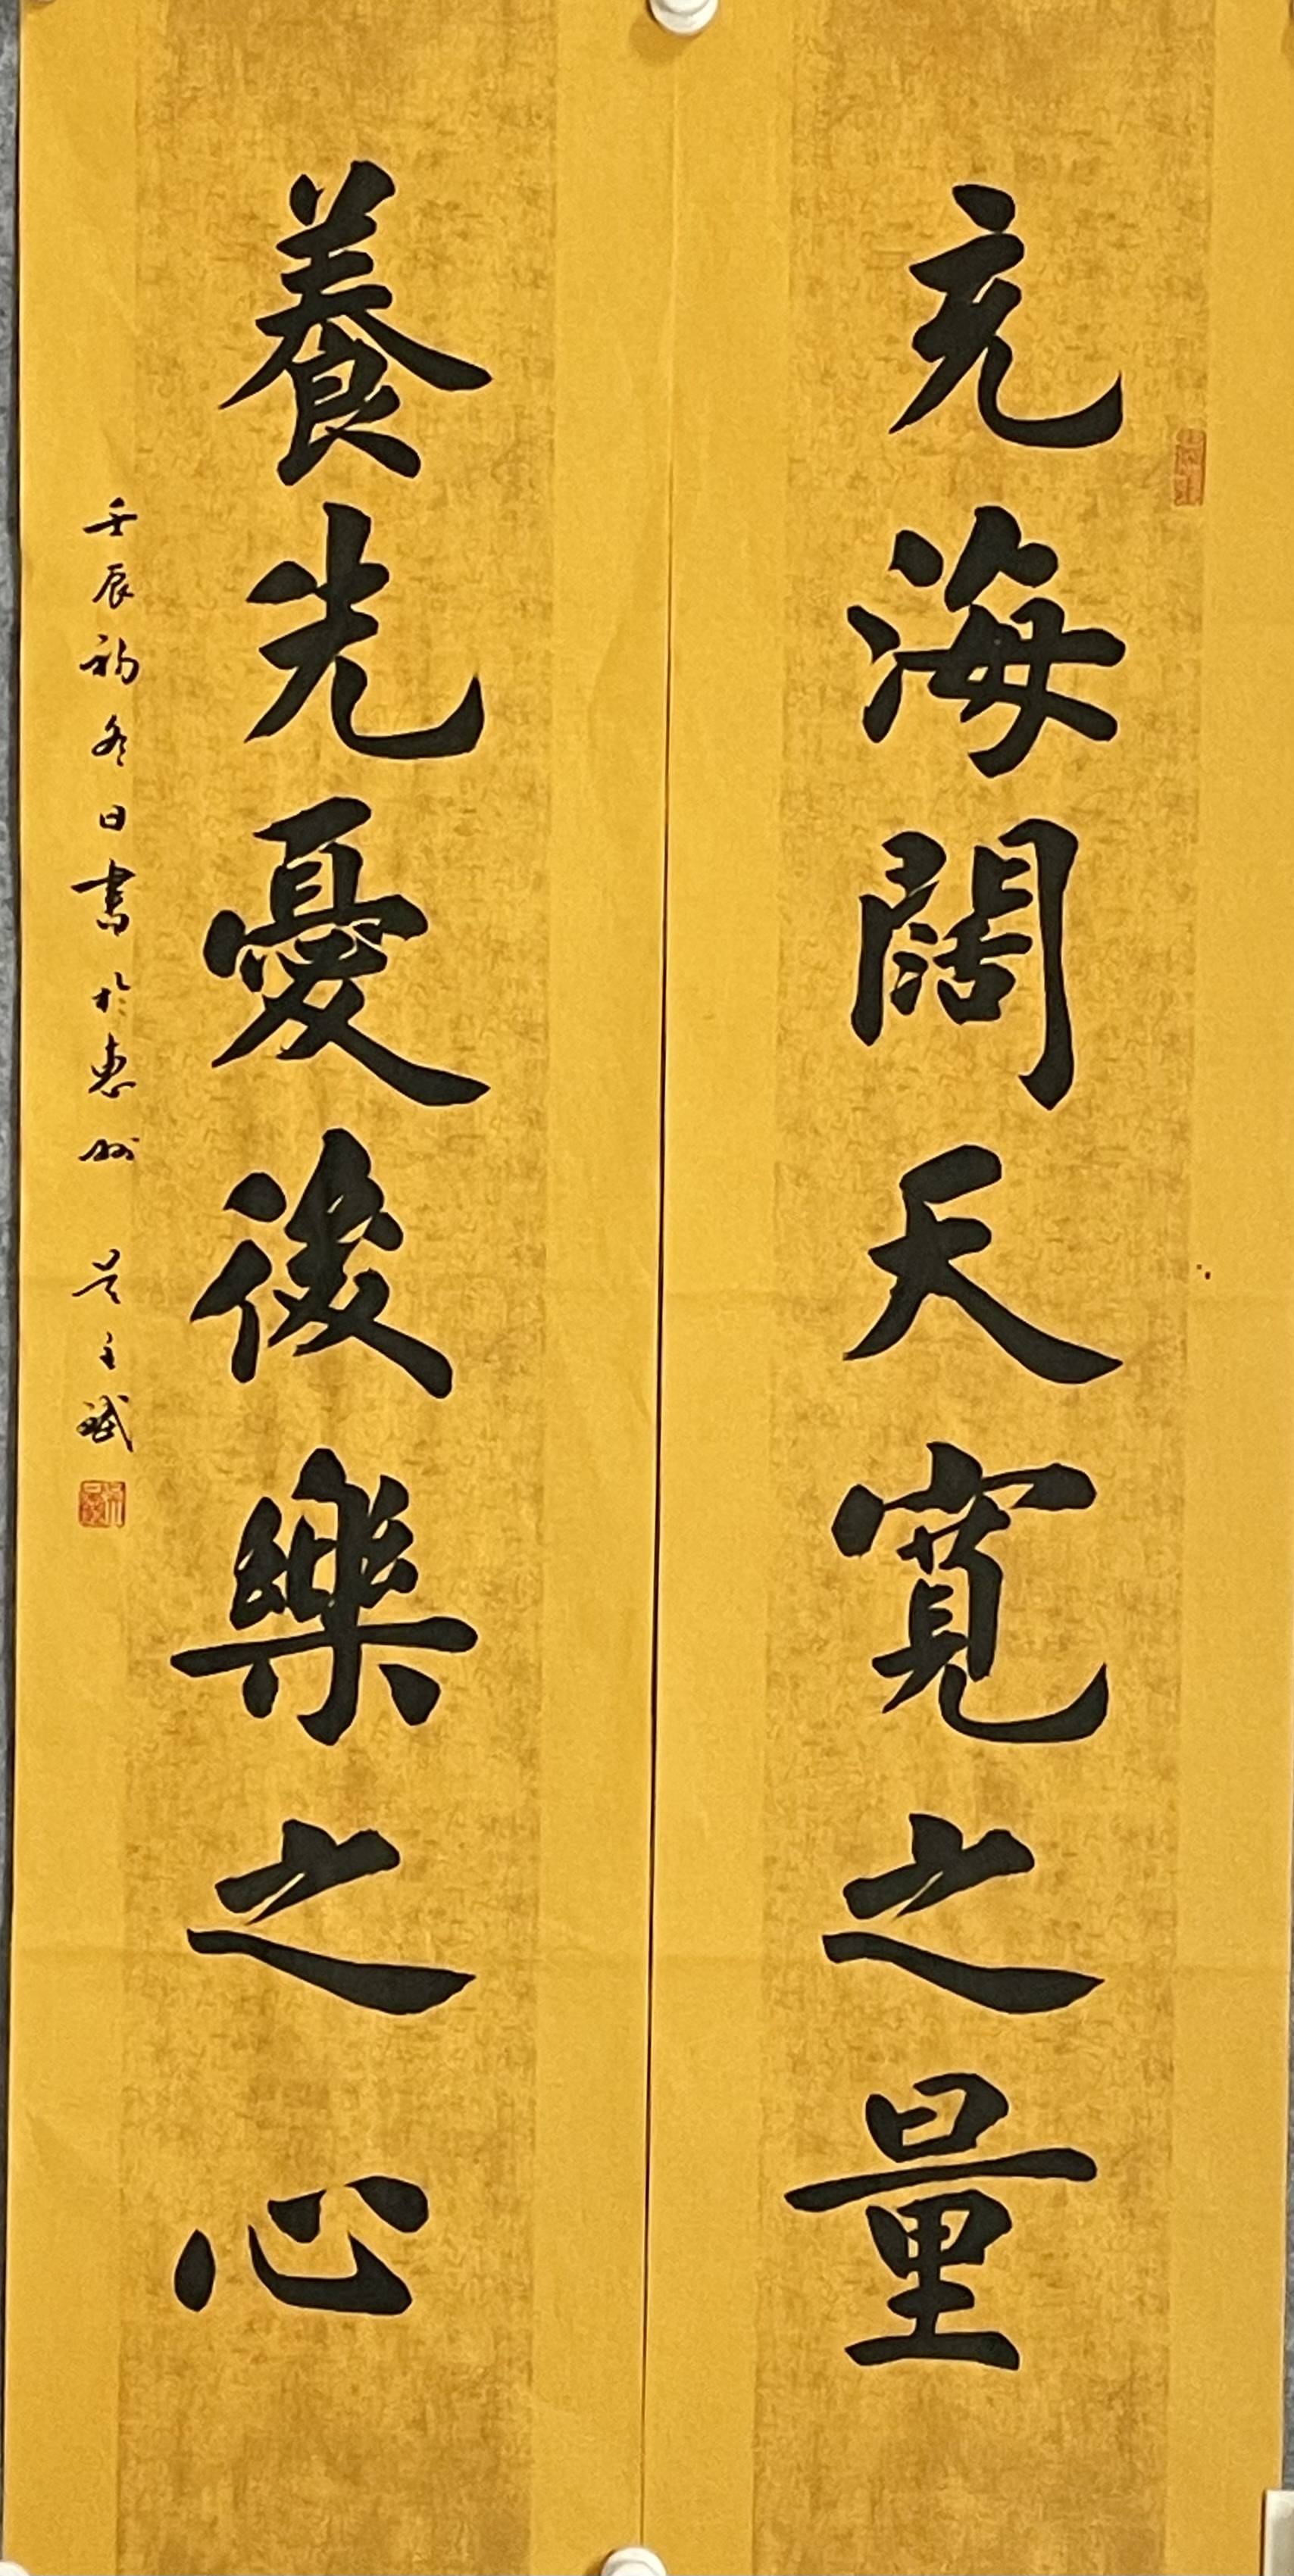 充海闊天寬之量
養先憂後樂之心
壬辰初冬日書於惠州 吴主斌